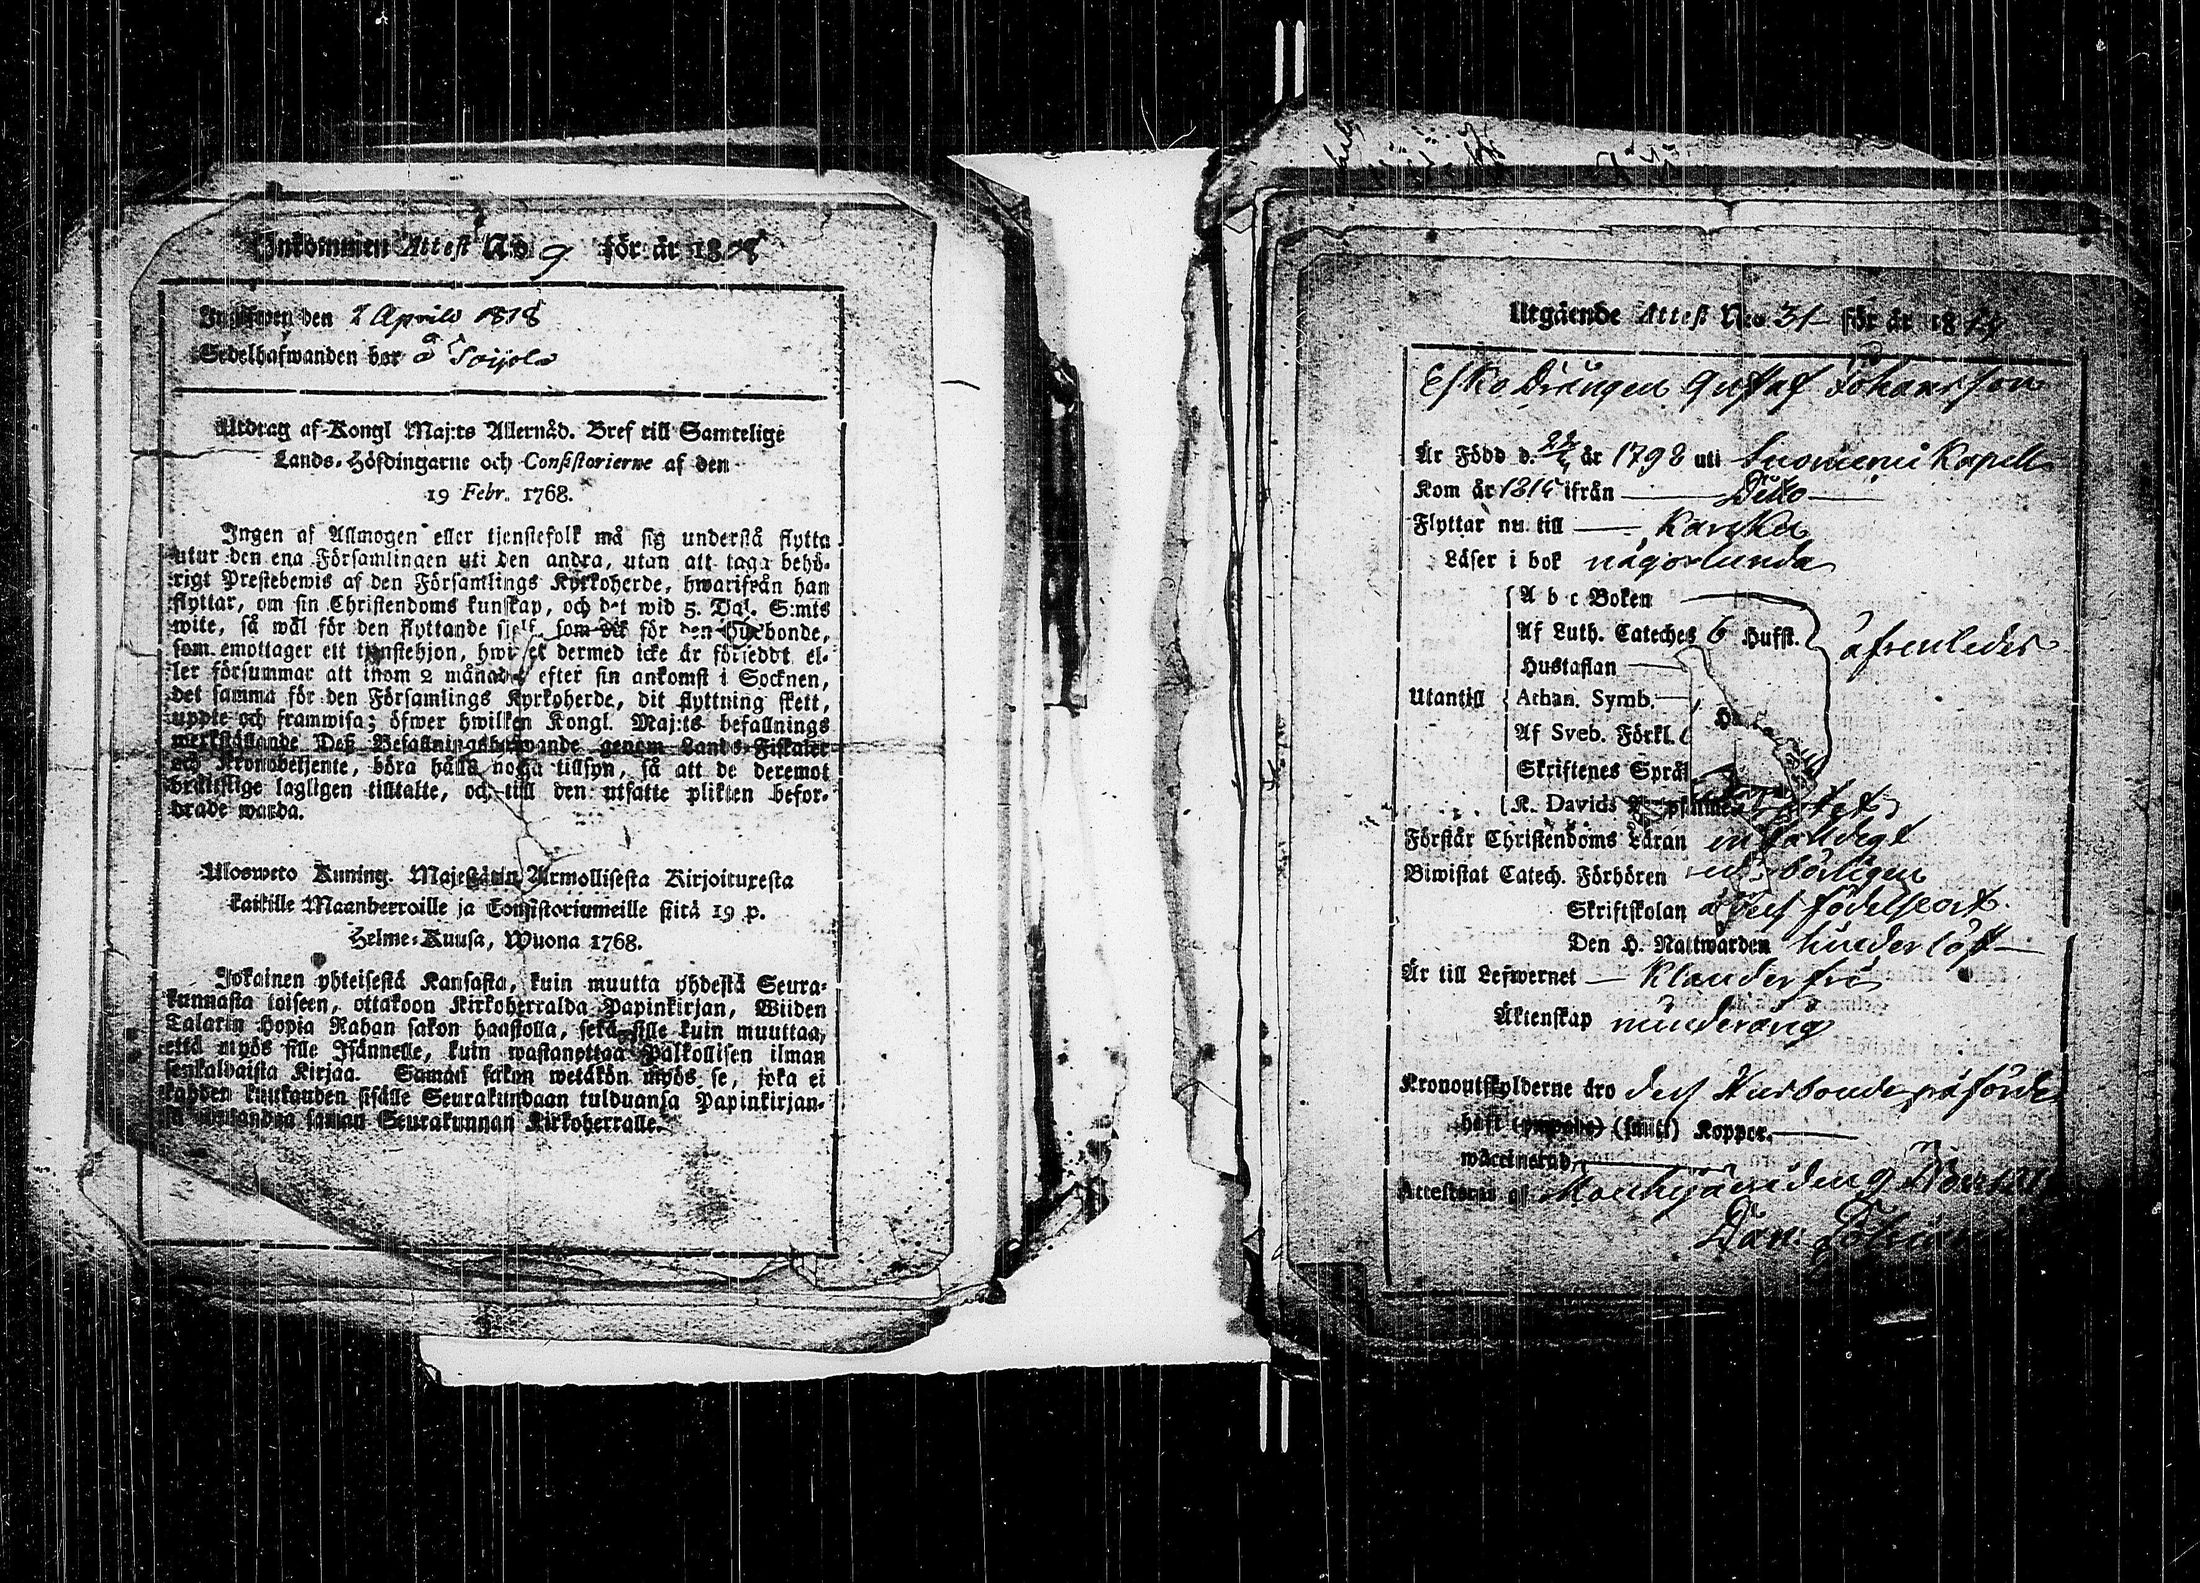 Inkommen Attest No 9 för år 1818
Inskrifwen den 2 Aprilis 1818
Sedelhafwanden bor å Soijola
Utdrag af Kongl Maj:ts Allernåd. Bref till Samtelige
Lands-Höfdingarne och Consistorierne af den
19 Febr. 1768.
Ingen af Allmogen eller tjenstefolk må sig understå flytta
utur den ena Församlingen uti den andra, utan att taga behö-
rigt Prestebewis af den Församlings Kyrkoherde, hwarifrån han
flyttar, om sin Christendoms kunskap, och det wid 5. Dal. S:mts
wite, så wäl för den flyttande sjelf, som ock för den Husbonde,
som emottager ett tjenstehjon, hwilket dermed icke är förseddt el-
ler försummar att inom 2 månader efter sin ankomst i Socknen,
det samma för den Församlings Kyrkoherde, dit flyttning skett,
uppte och framwisa; öfwer hwilken Kongl. Maj:ts befallnings
werkställande Deß Befallningshafwande genom Lands-Fiskaler
och Kronobetjente, böra hålla noga tillsyn, så att de deremot
bråttslige lagligen tilltalte, och till den utsatte plikten befor-
drade warda.
Ulosweto Kuning. Majestätin Armollisesta Kirjoituxesta
kaikille Maanherroille ja Consistoriumeille siitä 19 p.
Helme-Kuusa, Wuona 1768.
Jokainen yhteisestä Kansasta, kuin muutta yhdestä Seura-
kunnasta toiseen, ottakoon Kirkoherralda Papinkirjan, Wiiden
Talarin Hopia Rahan sakon haastolla, sekä sille kuin muuttaa,
että myös sille Isännelle, kuin wastanottaa Palkollisen ilman
senkaltaista Kirjaa. Saman sakon wetäkön myös se, joka ei
kahden kuukauden sisälle Seurakundaan tulduansa Papinkirjan-
sa saman Seurakunnan Kirkoherralle.
Utgående Attest No 31 för år 18
Drängen Gustaf Johansson
Är Född d. år 1798 uti Suoniemi Kapell
Kom år 1815 ifrån Ditto
Flyttar nu till Karkku
Läser i bok någorlunda
A b c Boken
Af Luth. Cateches 6 Hufst. äfvenledes
Hustaflan
Utantill Athan. Symb.
Af Sveb. Förkl.
Skriftenes Språk
K. Davids
Förstår Christendoms Läran enfalldigt
Biwistat Catech. Förhören behörigen
Skriftskolan å dess födelseort
Den H. Nattwarden hinderlöst
Är till Lefwernet Klanderfri
Äktenskap minderårig
Kronoutskylderne äro dess Husbonde påförde
haft Koppor.
waccinerad
Attesteras af Mouhijärvi den 9 Novemb
Dan.